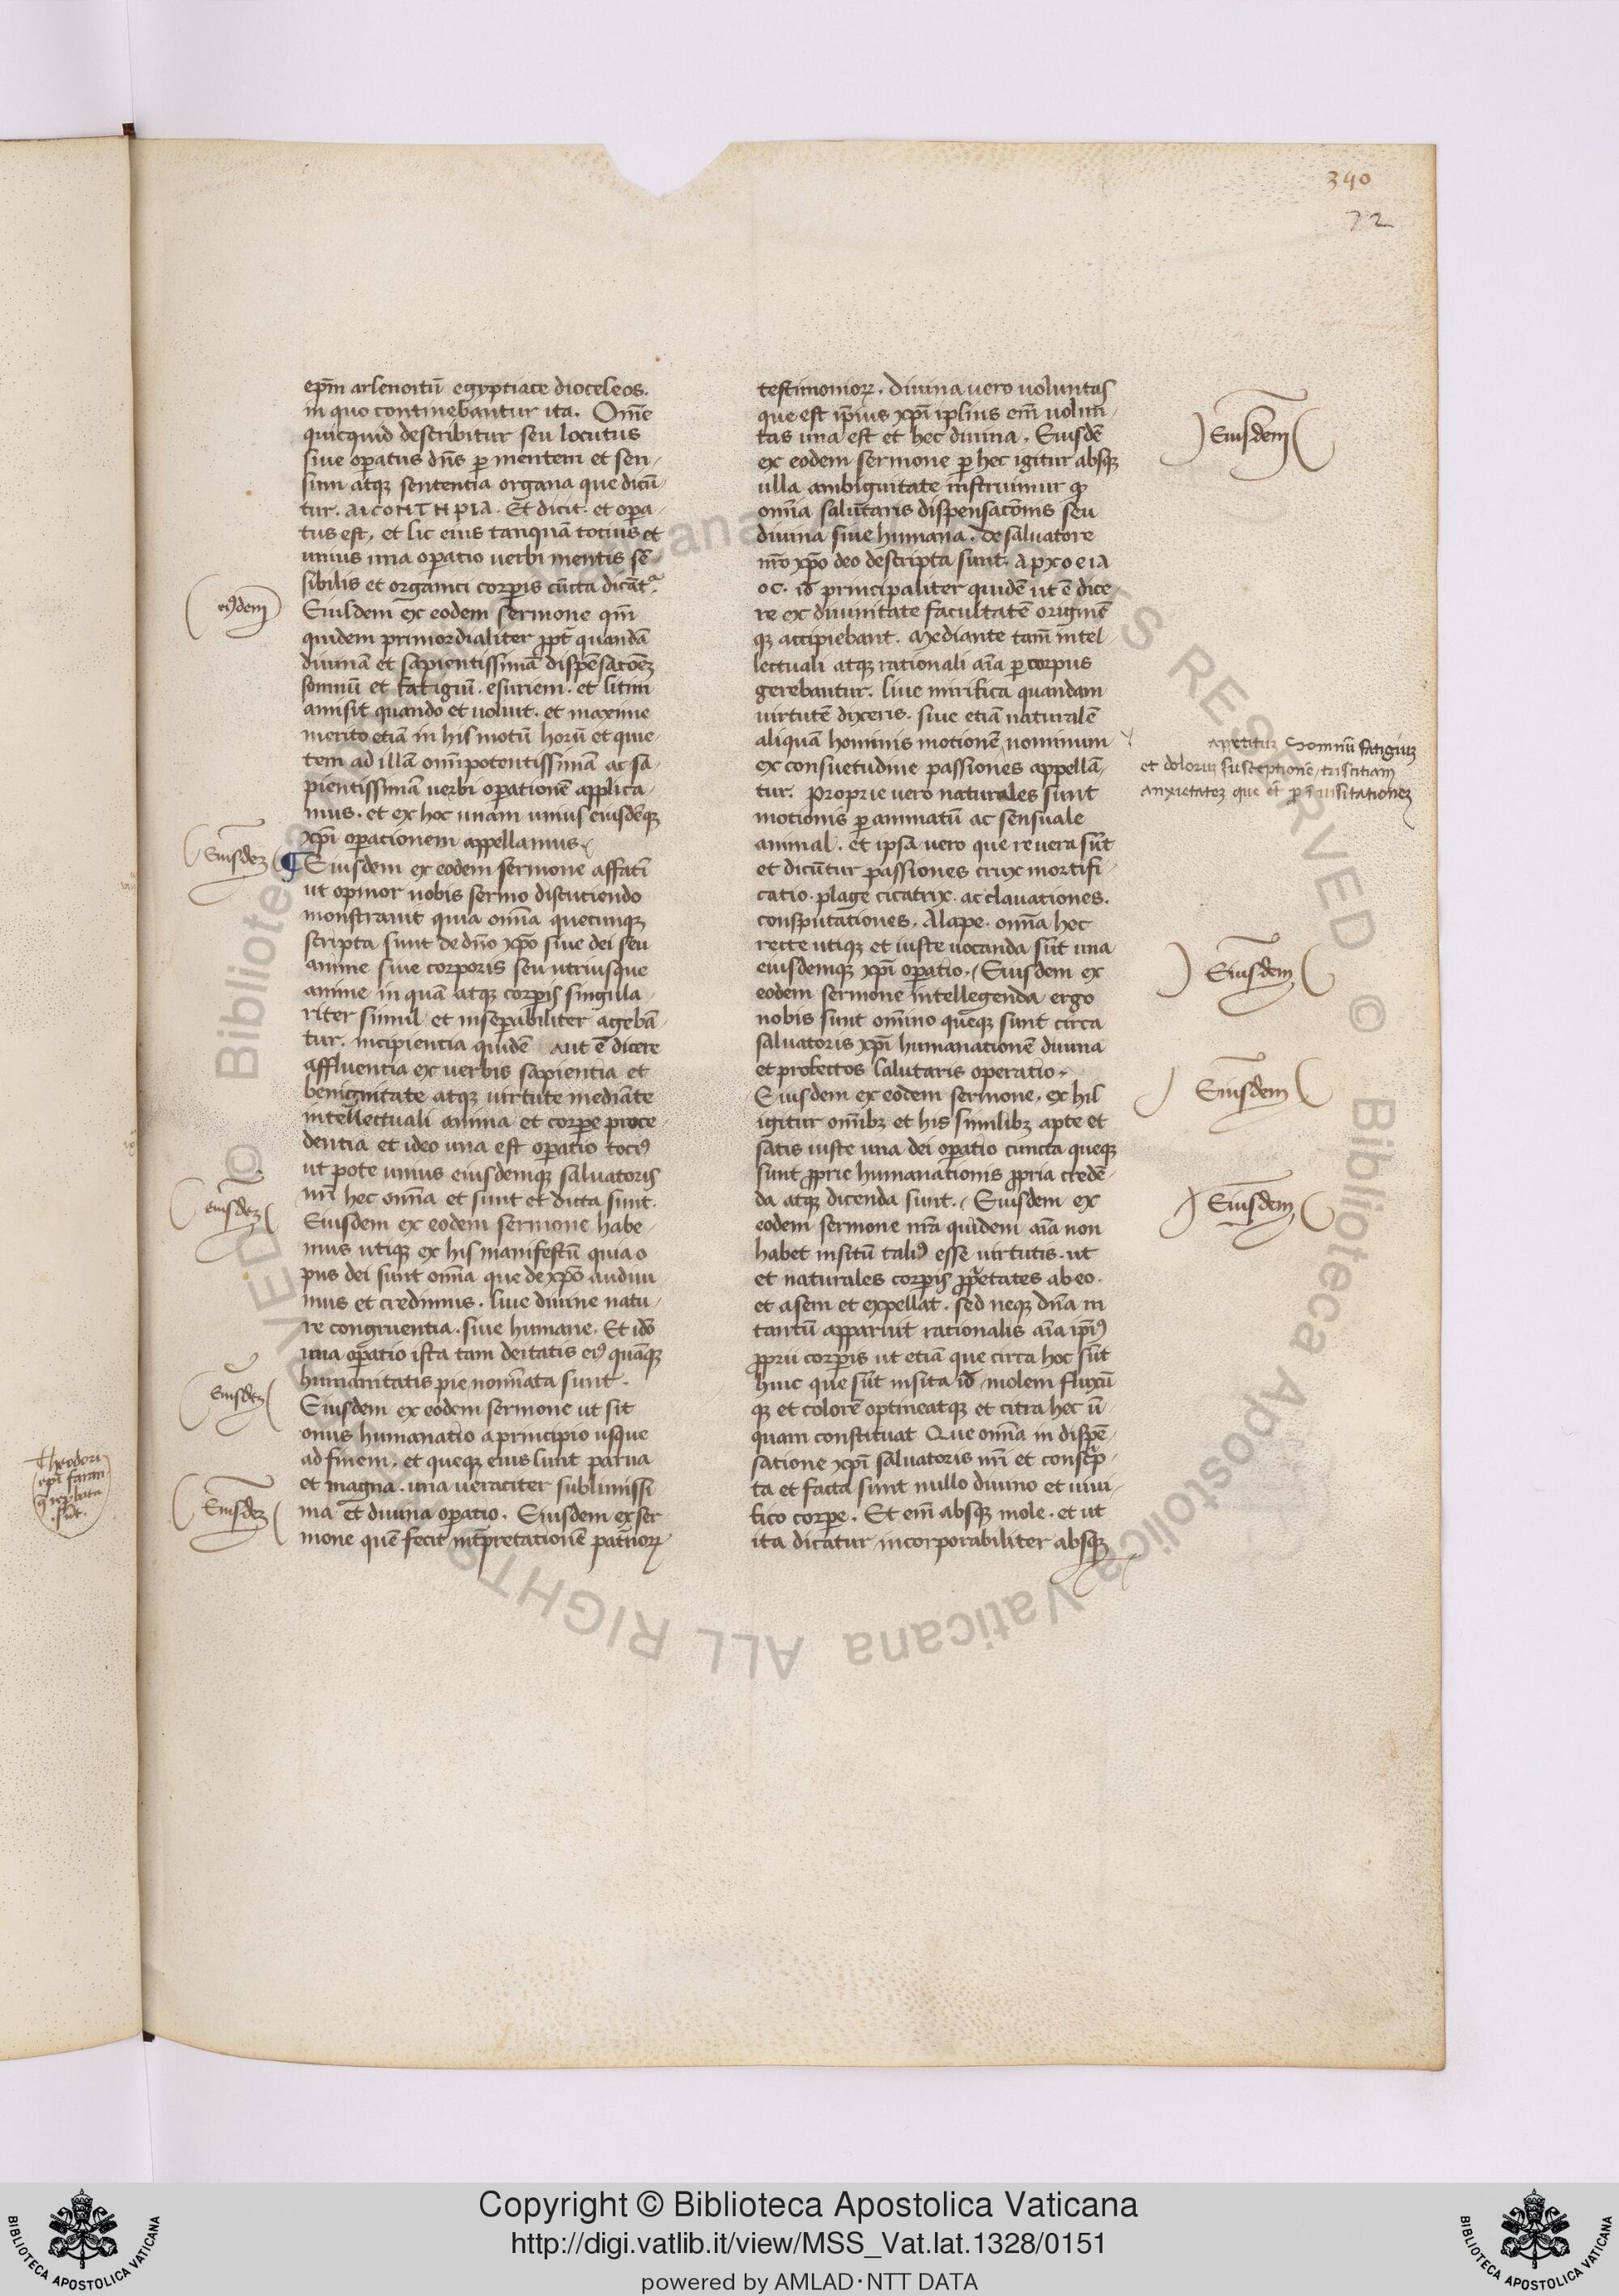 340
72
ep̄m arsenoitū egyptiace dioceseos.
in quo continebantur ita. Om̄e
quicquid describitur seu locutus
siue operatus dn̄s per mentem et sen-
sum atq; sententia organa que dicū-
tur. AICONTHPIA. Et dicit. et opera-
tus est, et sic eius tanquā totius et
unius una operatio uerbi mentis sē-
sibilis et organici corporis cūcta dicātr.
Eiusdem ex eodem sermone qm̄
quidem primordialiter ꝓpt quandā
diuinā et sapientissimā dispēsacōeꝫ
somnū et fatigiū. esuriem. et sitim
amisit quando et uoluit. et maxime
merito etiā in his motū horū et quie-
tem ad illā om̄ipotentissimā ac sa-
pientissimā uerbi operationē applica-
mus. et ex hoc unam unius eiusdēq;
xp̄i operacionem appellamus.
¶ Eiusdem ex eodem sermone affatī
ut opinor nobis sermo discuciendo
monstrauit quia om̄ia quecunq;
scripta sunt de dn̄o xp̄o siue dei seu
anime siue corporis seu utriusque
anime in quā atq; corporis singula-
riter simul et inseperabiliter agebā-
tur. incipientia quidē aut ē dicere
affluentia ex uerbis sapientia et
benignitate atq; uirtute mediāte
intellectuali anima et corpore proce-
dentia et ideo una est operatio tocius
ut pote unius eiusdemq; saluatoris
nr̄i hec om̄ia et sunt et dicta sunt.
Eiusdem ex eodem sermone habe-
mus utiq; ex his manifestū quia o
pus dei sunt om̄ia que de xp̄o audiui
mus et credimus. siue diuine natu-
re congruentia. siue humane. Et idō
una operatio ista tam deitatis eius quāq;
humanitatis pie nom̄ata sunt.
Eiusdem ex eodem sermone ut sit
omnis humanatio a principio usque
ad finem, et queq; eius sunt parua
et magna. una ueraciter sublimissi
ma et diuina operatio. Eiusdem ex ser
mone quē fecit int̄pretationē patrioꝝ
testimonioꝝ. Diuina uero uoluntas
que est ip̄ius xp̄i ipsius em̄ uolun-
tas una est et hec diuina. Eiusdē
ex eodem sermone per hec igitur absq;
ulla ambiguitate instruimur quod
om̄ia salutaris dispensacōnis seu
diuina siue humana. de saluatore
nr̄o xp̄o deo descripta sunt. APXOEIA
OC. id principaliter quidē ut ē dice
re ex diuinitate facultatē originē
q; accipiebant. Mediante tam̄ intel-
lectuali atq; rationali aīa per corpus
gerebantur. siue mirifica quandam
uirtutē dixeris. siue etiā naturalē
aliquā hominis motionē nominum
ex consuetudine passiones appellā-
tur. Proprie uero naturales sunt
motionis per animatū ac sensuale
animal. et ipsa uero que reuera sūt
et dicūtur passiones crux mortifi-
catio. plage cicatrix. ac clauationes.
consputationes. Alape. om̄ia hec
recte utiq; et iuste uocanda sūt una
eiusdemq; xp̄i operatio. Eiusdem ex
eodem sermone intellegenda ergo
nobis sunt om̄ino queq; sunt circa
saluatoris xp̄i humanationē diuina
et profectos salutaris operatio.
Eiusdem ex eodem sermone, ex his
igitur om̄ibꝫ et his similibꝫ apte et
satis iuste una dei operatio cuncta queq;
sunt ꝓprie humanationis ꝓpria credē-
da atq; dicenda sunt. Eiusdem ex
eodem sermone nr̄a quidem aīa non
habet insitū talius esse uirtutis. ut
et naturales corporis ꝓprietates ab eo.
et asem et expellat. sed neq; dn̄a in
tantū apparuit rationalis aīa ip̄ius
ꝓprii corporis ut etiā que circa hoc sūt
huic que sūt insita id molem fluxū
q; et colorē optineatq; et citra hec ū-
quam constituat Que om̄ia in dispē-
satione xp̄i saluatoris nr̄i et conscrip-
ta et facta sunt nullo diuino et uiui-
fico corpore. Et em̄ absq; mole. et ut
ita dicatur incorporabiliter absq;
eiusdem
Eiusdeꝫ
Eiusdeꝫ
Eiusdeꝫ
Eiusdeꝫ
Eiusdem
apetituꝫ somnū fatigiuꝫ
et doloruꝫ susceptionē, tristitiam
anxietateꝫ
Eiusdem
Eiusdem
Eiusdem
Theodori
ep̄i faran
Copyright © Biblioteca Apostolica Vaticana
http://digi.vatlib.it/view/MSS_Vat.lat.1328/0151
powered by AMLAD·NTT DATA
BIBLIOTECA APOSTOLICA VATICANA
BIBLIOTECA APOSTOLICA VATICANA
© Biblioteca Apostolica Vaticana ALL RIGHTS RESERVED